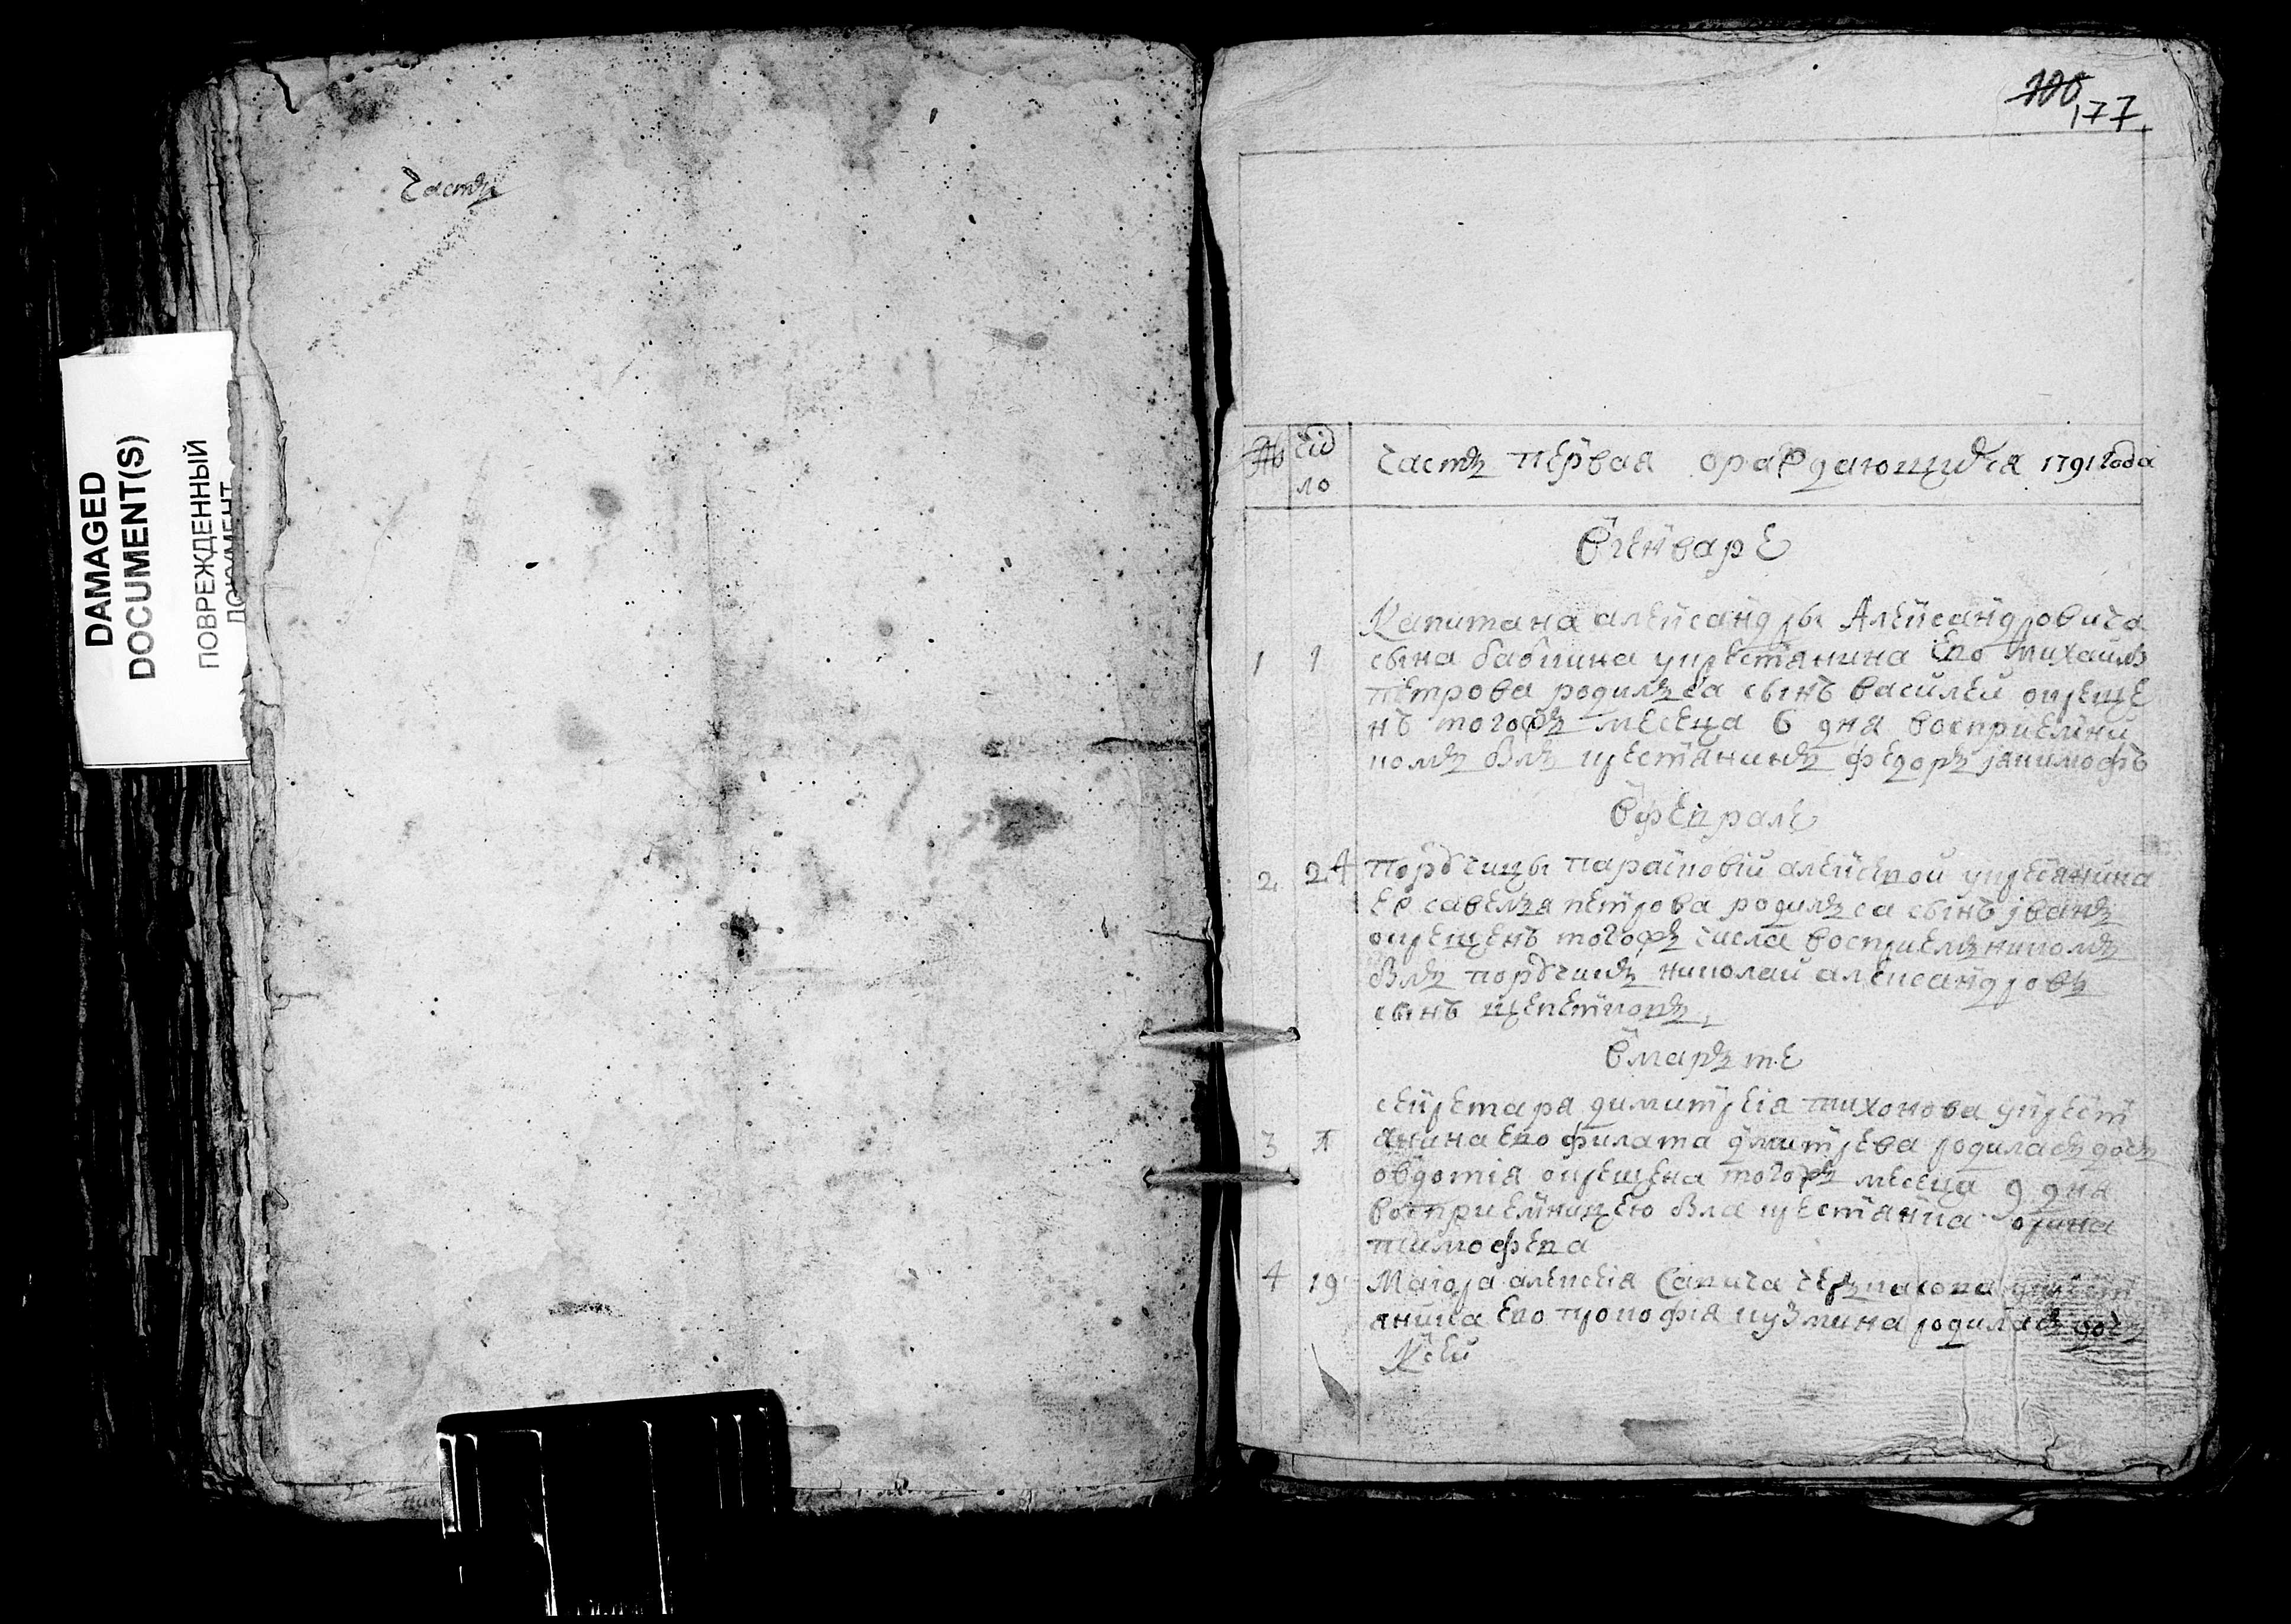 DAMAGED
DOCUMENT(S)
ПОВРЕЖДЕННЫЙ
ДОКУМЕНТ
Часть
177
№ число
часть первая о раждающихся 1791 года
В генваре
Капитана александры Александровича
1 1 сына бабкина у крестянина Ево михаила
петрова родилъса сынъ василеи окреще
нъ тогожъ месеца 6 дня восприемни
комъ былъ крестянинъ федоръ
В феврале
2 24 порутчицы параскови алексевой у крестянина
Ее савелъя петрова родилъса сынъ иванъ
окрещенъ тогожъ числа восприемъникомъ
былъ порутчикъ николаи александровъ
сынъ щепетковъ
В маръте
секретара димитреia тихонова у крест
3 янина ево филата дмитрева родиласъ дочъ
овдотiя окрещена тогожъ месеца 9 дня
восприемницею была крестянка орина
тимофева
4 19 Маiора алексеiя у крест
янина Ево прокофiя кузмина родиласъ дочъ
Ксеи